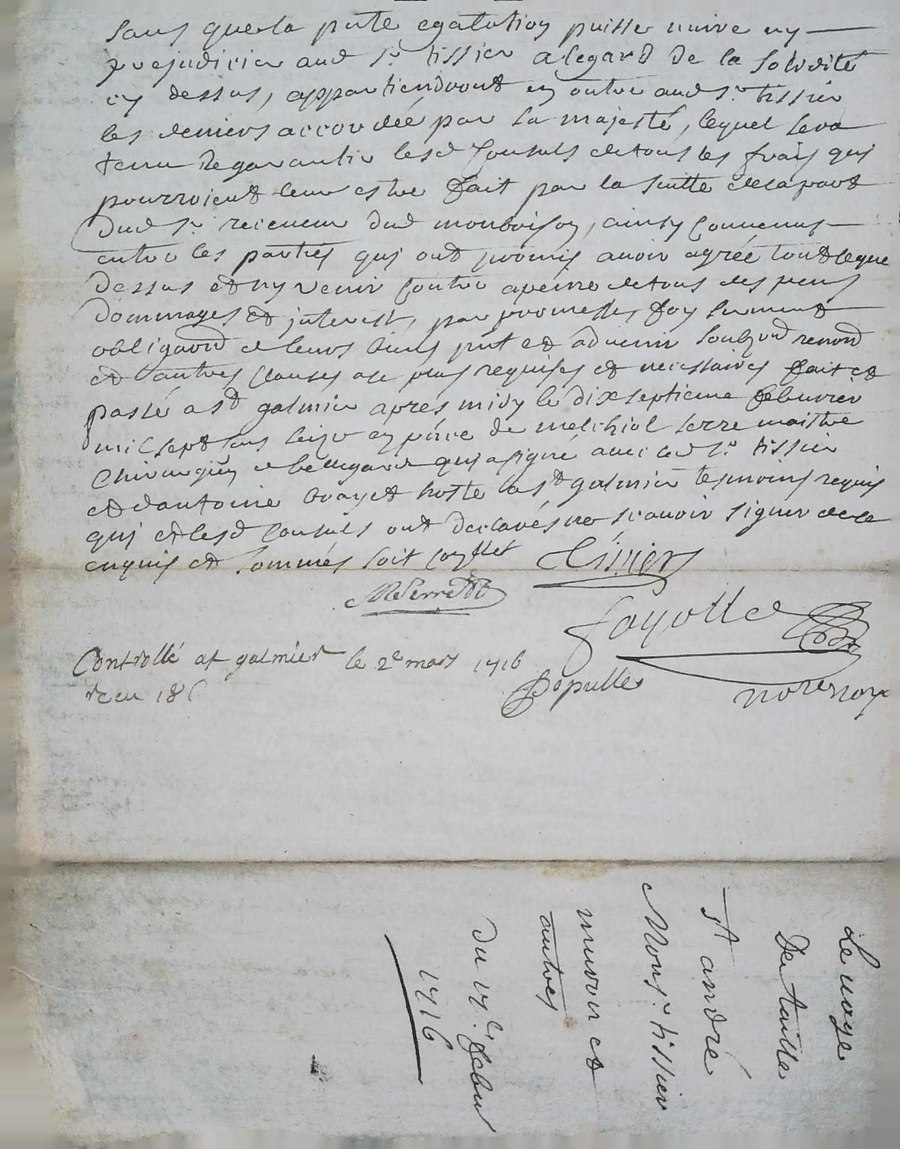 sans que la pnte egalation puisse nuire ny
prejudicier aud sr. tissier a legard de la solidité
cy dessus, appartiendront en outre aud sr. tissier
les deniers accordée par sa majesté, lequel sera
tenu de garantir lesd consuls de tous les frais qui
pourroient leur estre fait par la suitte de la part
dud sr. receueur dud monbrison, ainsy conuenus
entre les parties qui ont promis auoir agréé tout ce que
dessus et ny venir contre a peine de tous despens
dommages et interest, par promesses foy serment
obligaon de leurs biens pnt et aduenir renon
et autres clauses a ce plus requises et necessaires fait et
passé a st galmier apres midy le dixseptieme feburier
mil sept cens seize en pnce de melchiol serre maistre
chirurgien de bellegarde qui a signé auec led sr. tissier
et dantoine hoste a st galmier tesmoins requis
qui et lesd consuls ont declarés ne scauoir signer de ce
enquis et sommés soit
Tissier
MeSerre
fayolle
Controllé a st galmier le 2e mars 1716
receu 18s
Populle
nore roy
Le uoye
De taille
St andré
Mons.r tissier
muron et
autres
du 17.e febur
1716